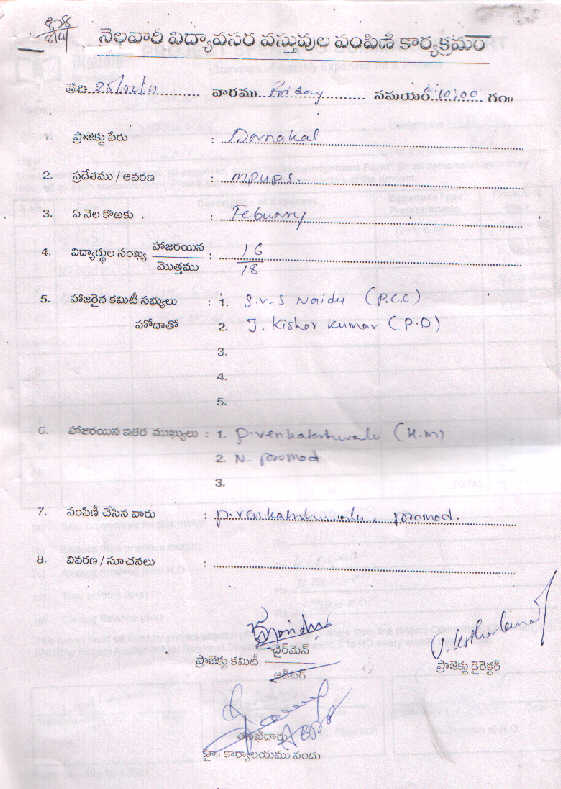 నెలవారి విద్యావసర వస్తువుల పంపిణి కార్యక్రమం
తేది 25/02/11 వారము Friday సమయం 10:00 గం॥
1. ప్రాజెక్టు పేరు : Dornakal
2. ప్రదేశము / ఆవరణ : M.P.U.P.S.
3. ఏ నెల కొఱకు : Febuary
4. విద్యార్థుల సంఖ్య హాజరయిన : 16
మొత్తము 18
5. హాజరైన కమిటీ సభ్యులు : 1. S.V.S Naidu (P.C.C)
హోదాతో 2. J. Kishor Kumar (P.D)
3.
4.
5.
6. హాజరయిన ఇతర ముఖ్యులు : 1. P. venkateshwarlu (H.M)
2. N. Pramod
3.
7. పంపిణీ చేసిన వారు : P. venkateshwarlu, Pramod.
8. వివరణ / సూచనలు :
చైర్‌మెన్
ప్రాజెక్టు కమిటి
ప్రాజెక్టు డైరెక్టర్
కార్యాలయము నందు